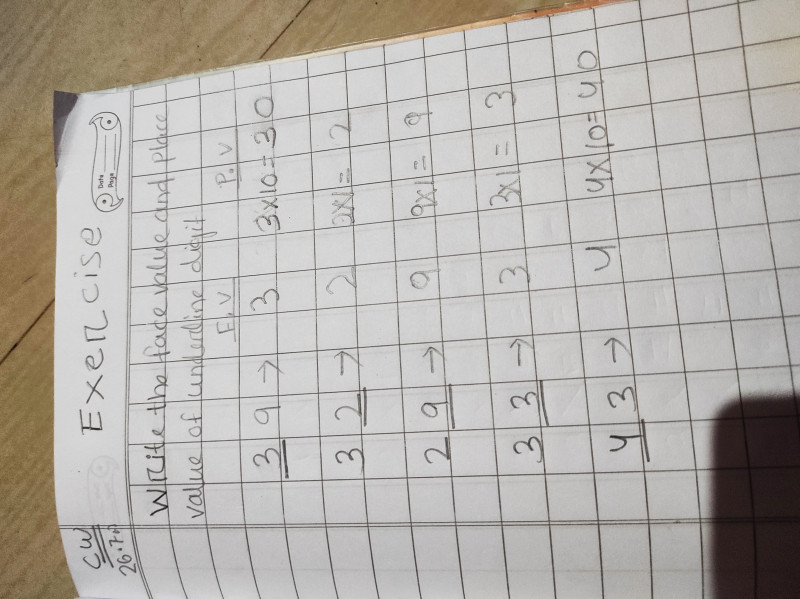 CW
26.7.
Exercise
Date
Page
Write the face value and place
value of underline digit
F.V P.V
39 → 3 3x10=30
32 → 2 2x1=2
29 → 9 9x1=9
33 → 3 3x1=3
43 → 4 4x10=40